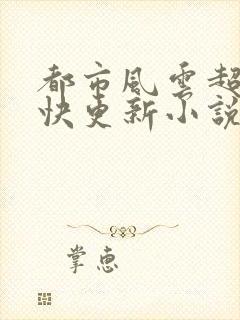 都市風雲超
快更新小說
掌惠